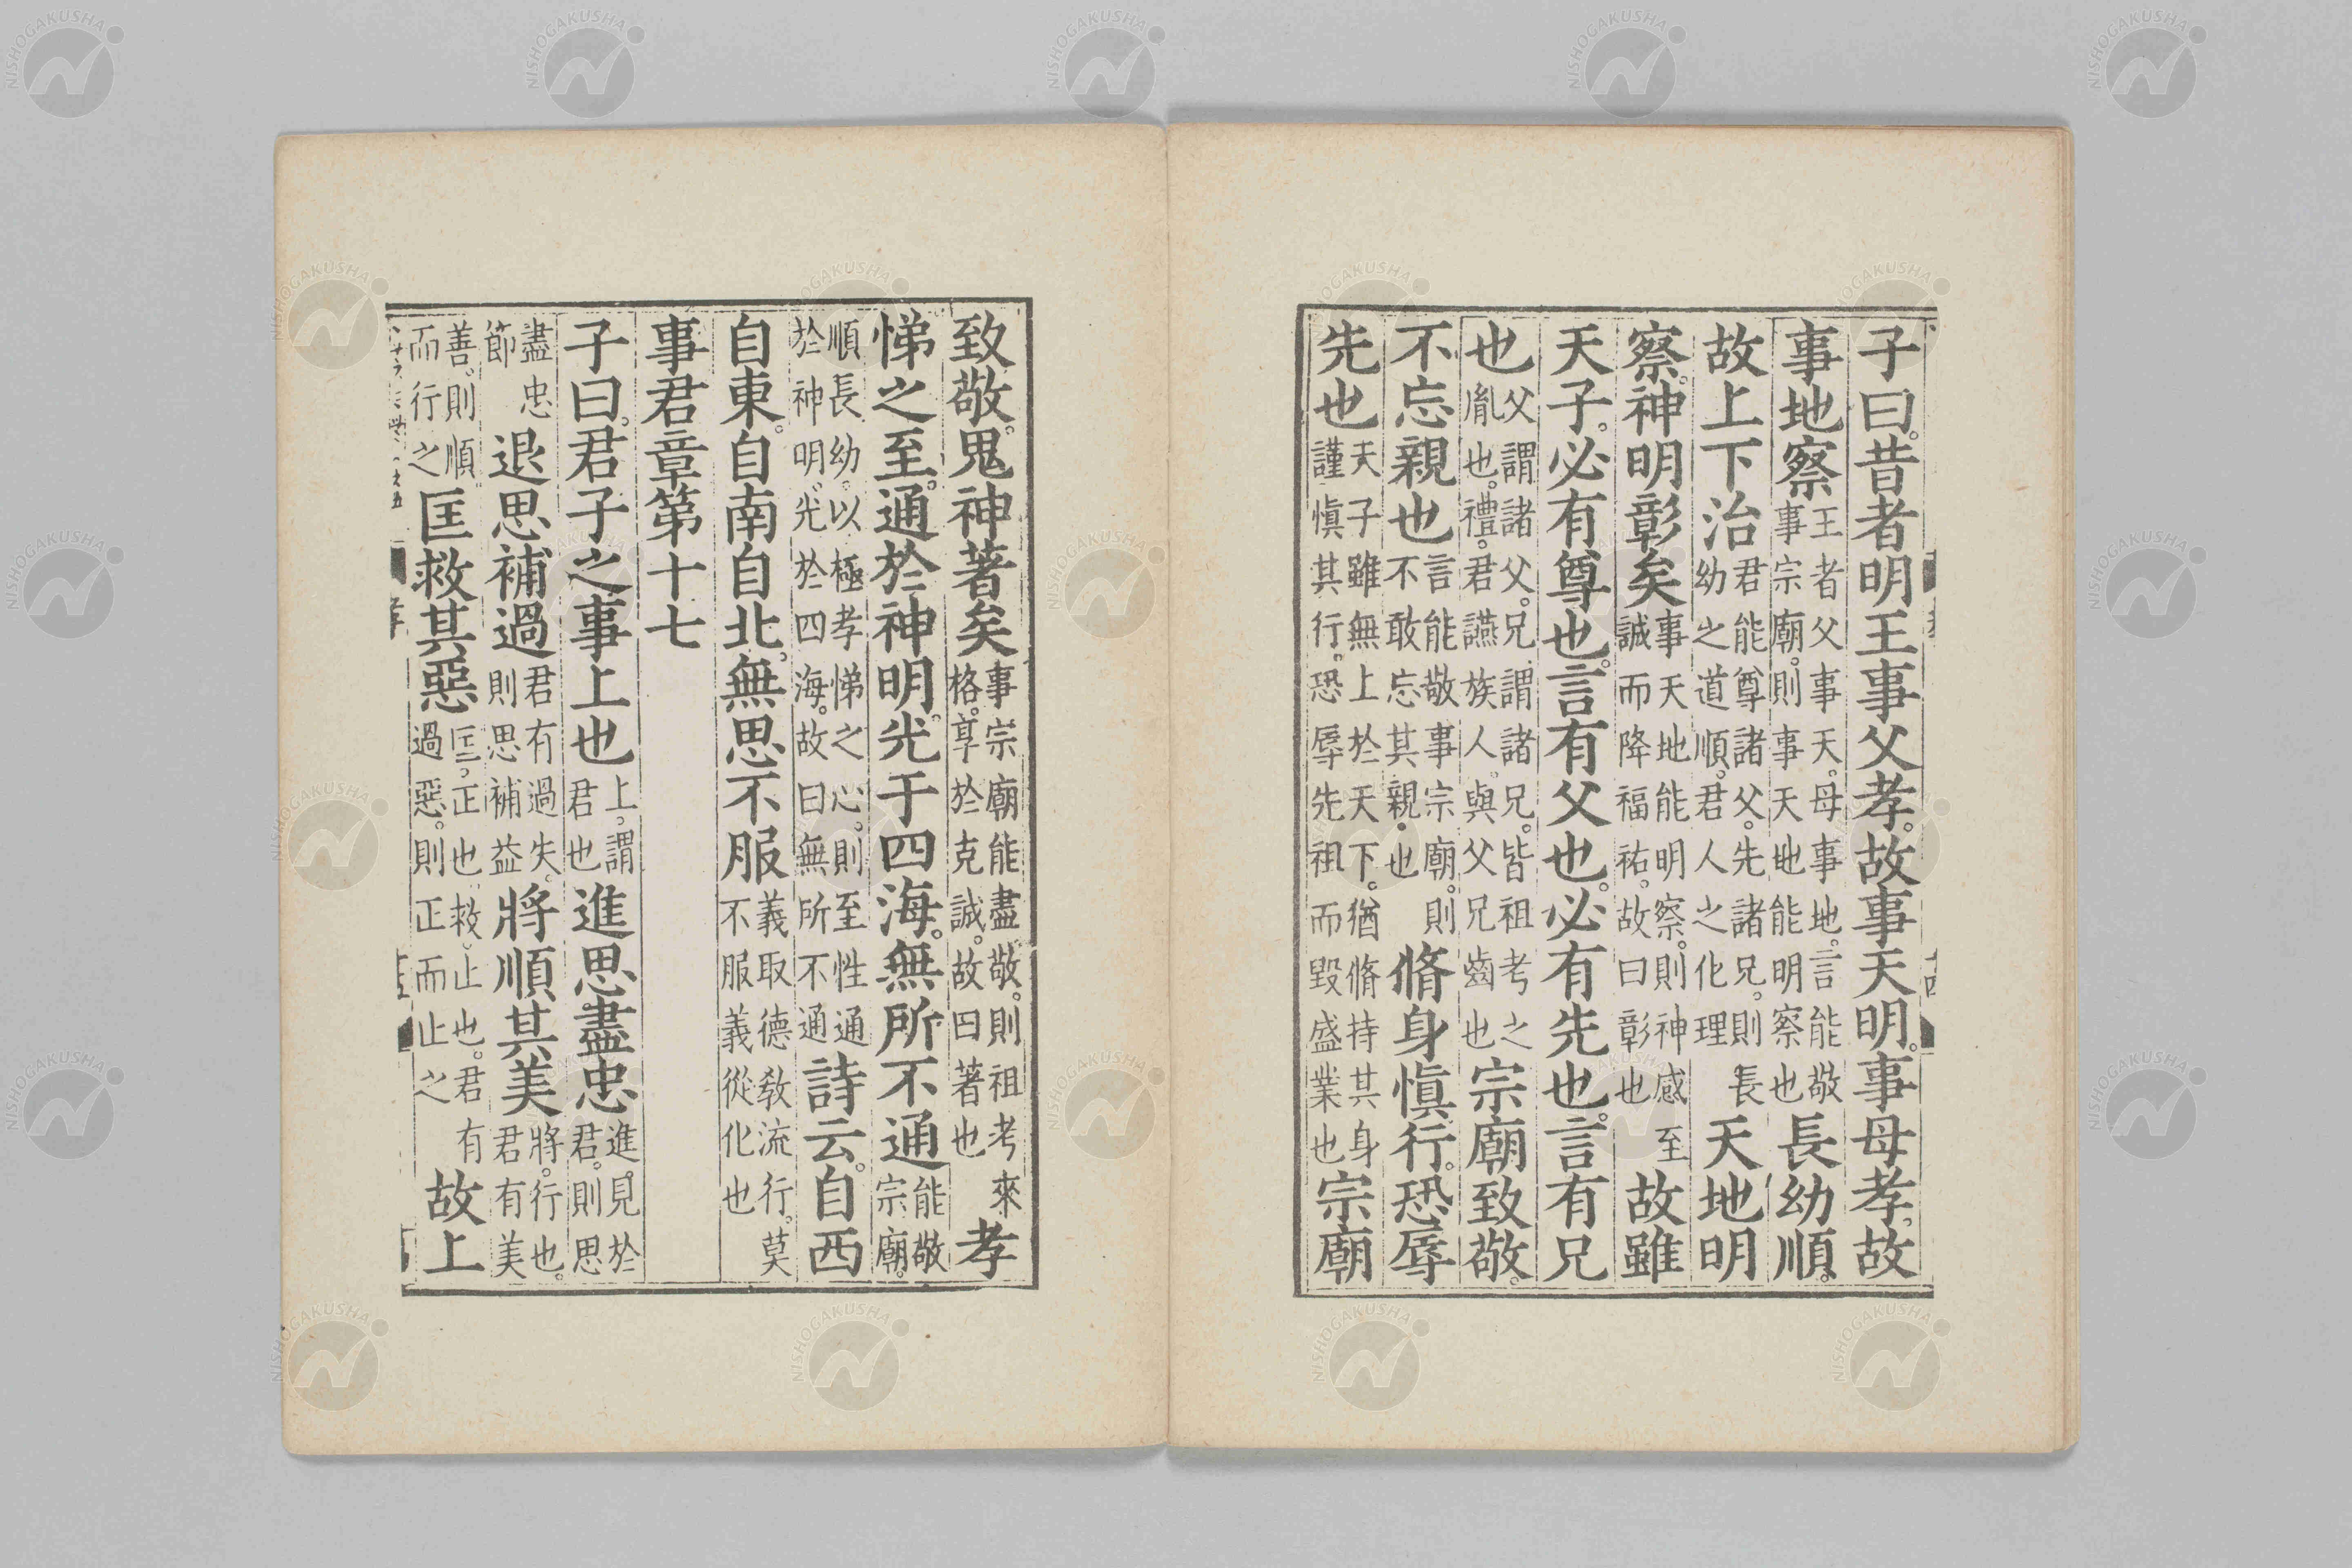 子曰。昔者明王事父孝。故事天明。事母孝。故
事地察王者父事天。母事地。言能敬事宗廟。則事天地能明察也長幼順。
故上下治君能尊諸父。先諸兄。則長幼之道順。君人之化理天地明
察。神明彰矣事天地能明察。則神感至誠而降福祐。故曰彰也故雖
天子。必有尊也。言有父也。必有先也。言有兄
也父謂諸父。兄謂諸兄。皆祖考之胤也。禮。君讌族人。與父兄齒也宗廟致敬。
不忘親也言能敬事宗廟。則不敢忘其親。也脩身慎行。恐辱
先也天子雖無上於天下。猶脩持其身謹慎其行。恐辱先祖而毀盛業也宗廟
致敬。鬼神著矣事宗廟能盡敬。則祖考來格。享於克誠。故曰著也孝
悌之至。通於神明。光于四海。無所不通能敬宗廟。
順長幼。以極孝悌之心。則至性通於神明。光於四海。故曰無所不通詩云。自西
自東。自南自北。無思不服義取德教流行。莫不服義從化也
事君章第十七
子曰。君子之事上也上。謂君也進思盡忠進。見於君。則思
盡忠節退思補過君有過失。則思補益將順其美將。行也。君有美
善。則順而行之匡救其惡匡。正也。救。止也。君有過惡。則正而止之故上
NISHOGAKUSHA